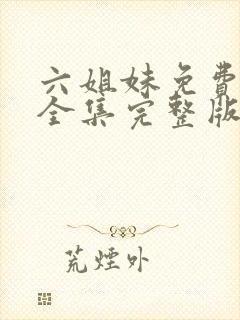 六姐妹免費
全集完整版
荒煙外